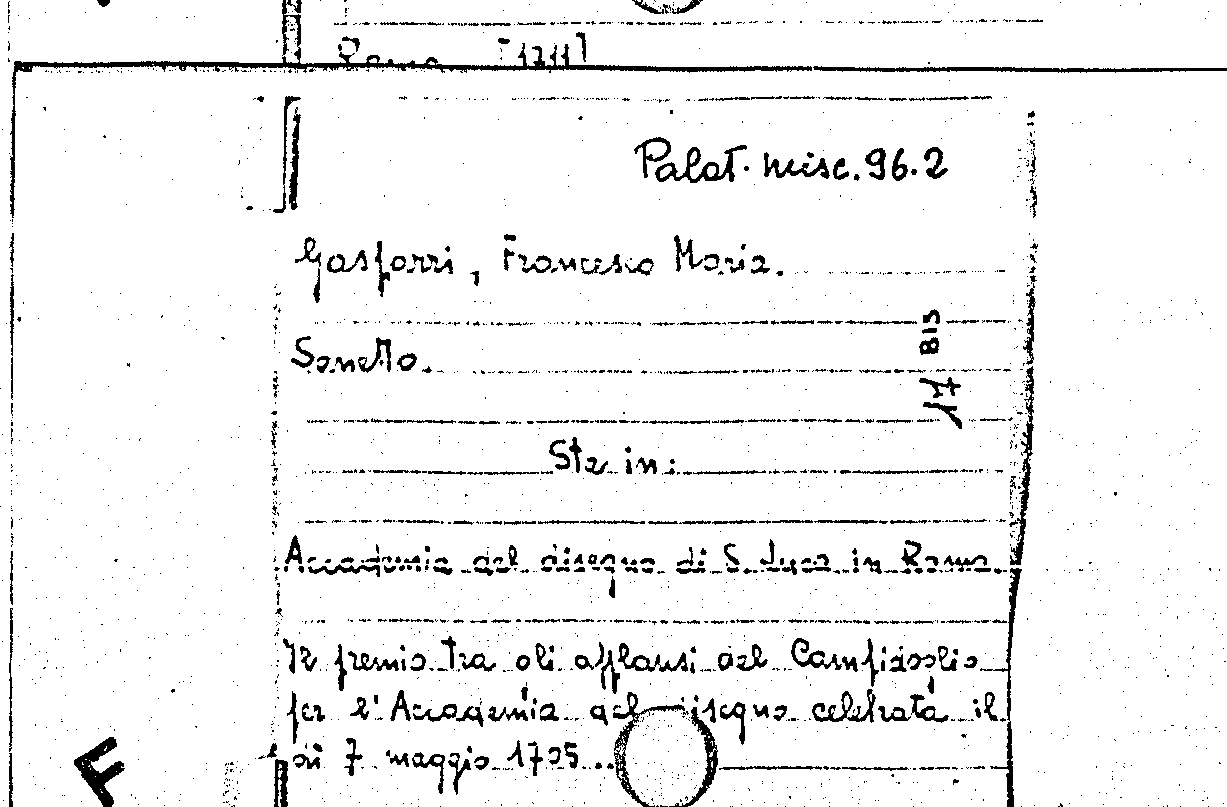 Roma [1711]
Palat. misc. 96.2
Gasparri, Francesco Maria.
17 BIS
Sonetto.
Sta in:
Accademia del disegno di S. Luca in Roma.
Il premio tra gli applausi del Campidoglio
per l'Accademia del disegno celebrata il
dì 7 maggio 1705...
F